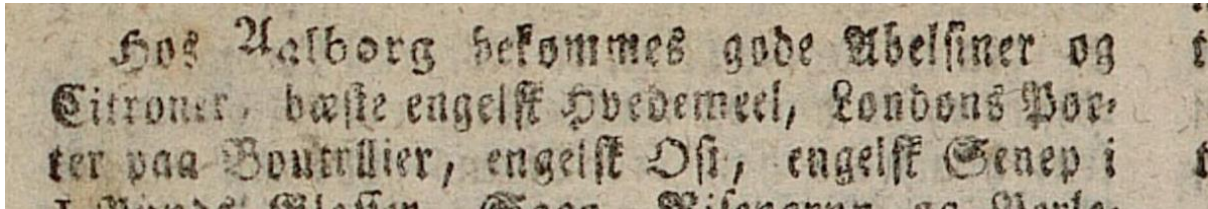 Hos Aalborg bekommes gode Abelsiner og
Citroner, bæste engelsk Hvedemeel, Londons Por-
ter paa Bouteillier, engelsk Ost, engelsk Senep i